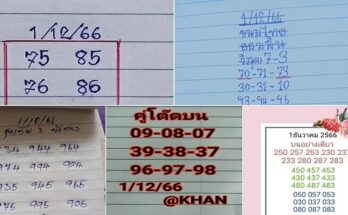 1/12/66
75 85
76 86
1/12/66
7-3
70-71-73
30-31-10
93-94-96
1/12/66
934 944 964
974 994 904
935 945 965
975 995 905
คู่โต๊ดบน
09-08-07
39-38-37
96-97-98
1/12/66
@KHAN
1ธันวาคม 2566
บนอย่างเดียว
250 257 253 230 237
233 280 287 283
450 457 453
430 437 433
480 487 483
050 057 053
030 037 033